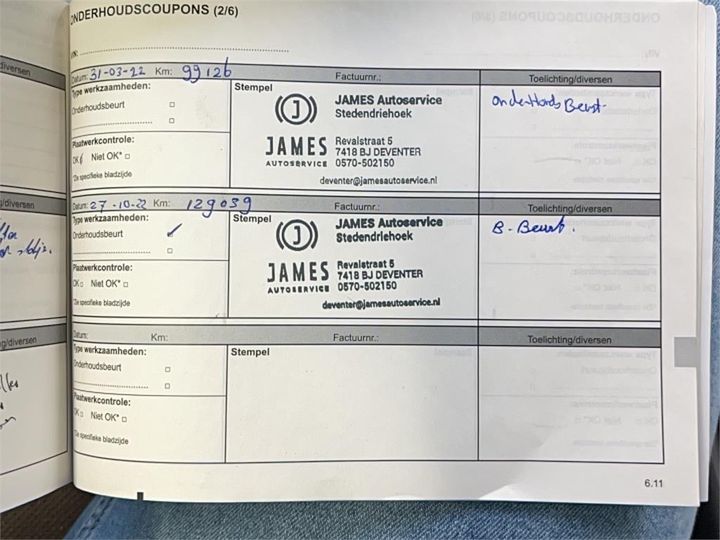 ONDERHOUDSCOUPONS (2/6)
VIN:
Datum: 31-03-22 Km: 99126 Factuurnr.: Toelichting/diversen
Type werkzaamheden:
Onderhoudsbeurt
Plaatwerkcontrole:
OK Niet OK*
*Zie specifieke bladzijde
Stempel
JAMES Autoservice
Stedendriehoek
JAMES
AUTOSERVICE
Revalstraat 5
7418 BJ DEVENTER
0570-502150
deventer@jamesautoservice.nl
Datum: 27-10-22 Km: 129039 Factuurnr.: Toelichting/diversen
Type werkzaamheden:
Onderhoudsbeurt
Plaatwerkcontrole:
OK Niet OK*
*Zie specifieke bladzijde
Stempel
JAMES Autoservice
Stedendriehoek
JAMES
AUTOSERVICE
Revalstraat 5
7418 BJ DEVENTER
0570-502150
deventer@jamesautoservice.nl
B-Beurt.
Datum: Km: Factuurnr.: Toelichting/diversen
Type werkzaamheden:
Onderhoudsbeurt
Plaatwerkcontrole:
OK Niet OK*
*Zie specifieke bladzijde
Stempel
6.11